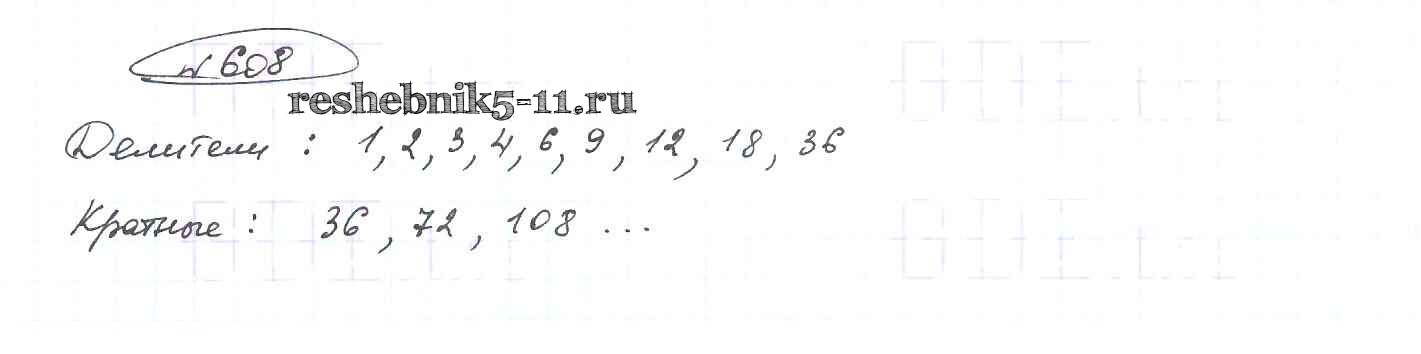 № 608
reshebnik5-11.ru
Делители : 1, 2, 3, 4, 6, 9, 12, 18, 36
Кратные : 36, 72, 108 ...